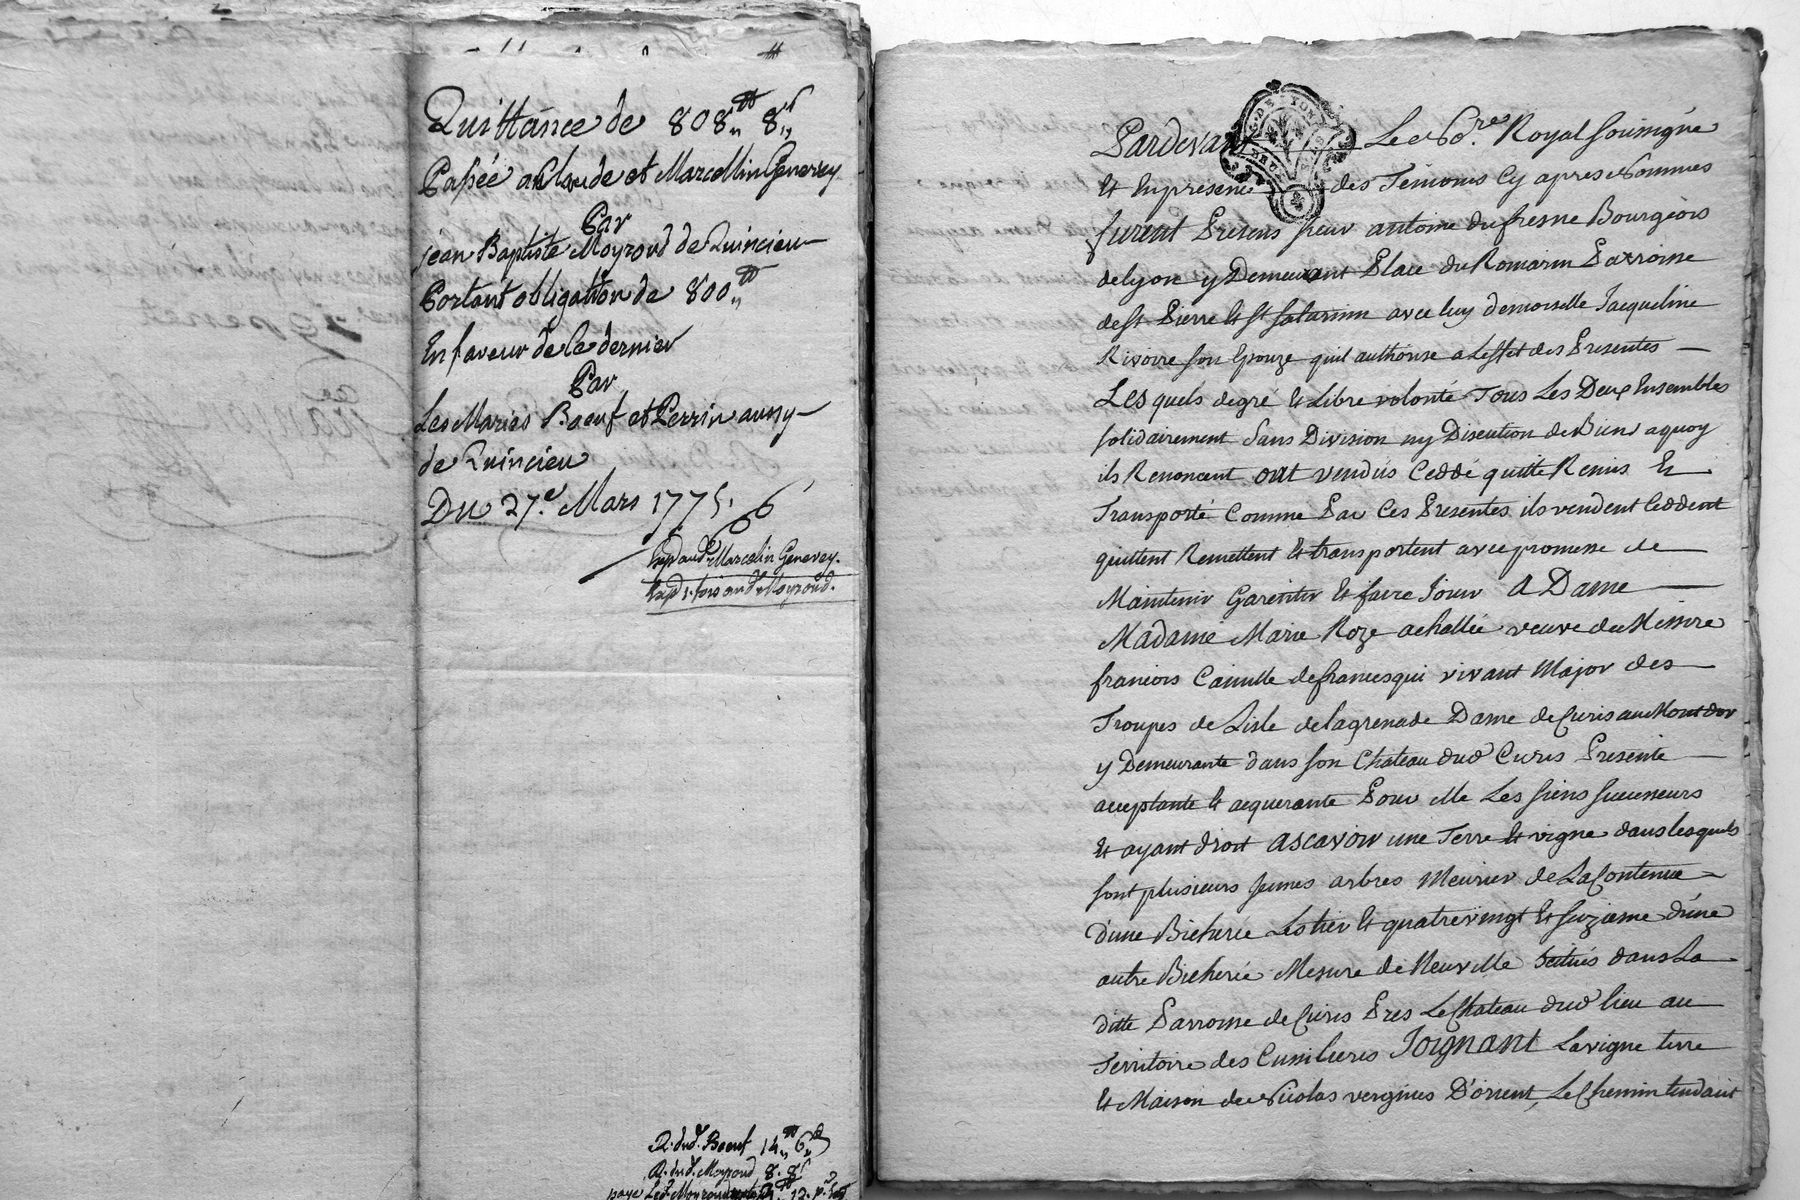 Quittance de 808₶ 8ˢ
Passée a Claude et Marcellin Genevey
Par
jean Baptiste Moyroud de Quincieu
Portant obligation de 800₶
En faveur de ce dernier
Par
Les Mariés Boeuf et Perrin aussy
de Quincieu
Du 27.e Mars 1775.
Exp aud.t Marcelin Genevey.
Exp.d 1. fois aud.t Moyroud.
R. dud. Boeuf 14₶ 6ᵈ
R. dud. Moyroud 8. 8ˢ
paye Led. Moyroud
G. DE LYON
Pardevant Le No.re Royal soussigné
Et En presence des Temoins Cy apres Nommés
furent Presens sieur antoine dufresne Bourgeois
de lyon y Demeurant Place du Romarin Parroisse
de st Pierre et st saturnin avec luy demoiselle Jacqueline
Rivoire son Epouze quil authorise a Leffet des Presentes
Les quels de gré et Libre volonté Tous Les Deux Ensembles
solidairement sans Division ny Discution de Biens aquoy
ils Renoncent ont vendus Ceddé quitté Remis Et
Transporté Comme Par Ces Presentes ils vendent Ceddent
quittent Remettent Et transportent avec promesse de
Maintenir Garentir Et faire Jouir A Dame
Madame Marie Roze achallée veuve de Messire
francois Camille de francesqui vivant Major des
Troupes de Lisle de la grenade Dame de Curis au Mont dor
y Demeurante dans son Chateau dud Curis Presente
acceptante Et acquerante Pour elle Les siens successeurs
Et ayant droit ascavoir une Terre Et vigne dans lesquels
sont plusieurs Jeunes arbres Meurier de La Contenue
d'une Bicherée Les tier Et quatrevingt Et seizieme d'une
autre Bicherée Mesure de Neuville scitués dans La
ditte Parroisse de Curis Pres Le Chateau dud lieu au
Territoire des Cunilieres Joignant La vigne terre
Et Maison de Nicolas vergnies D'orient, Le Chemin tendant